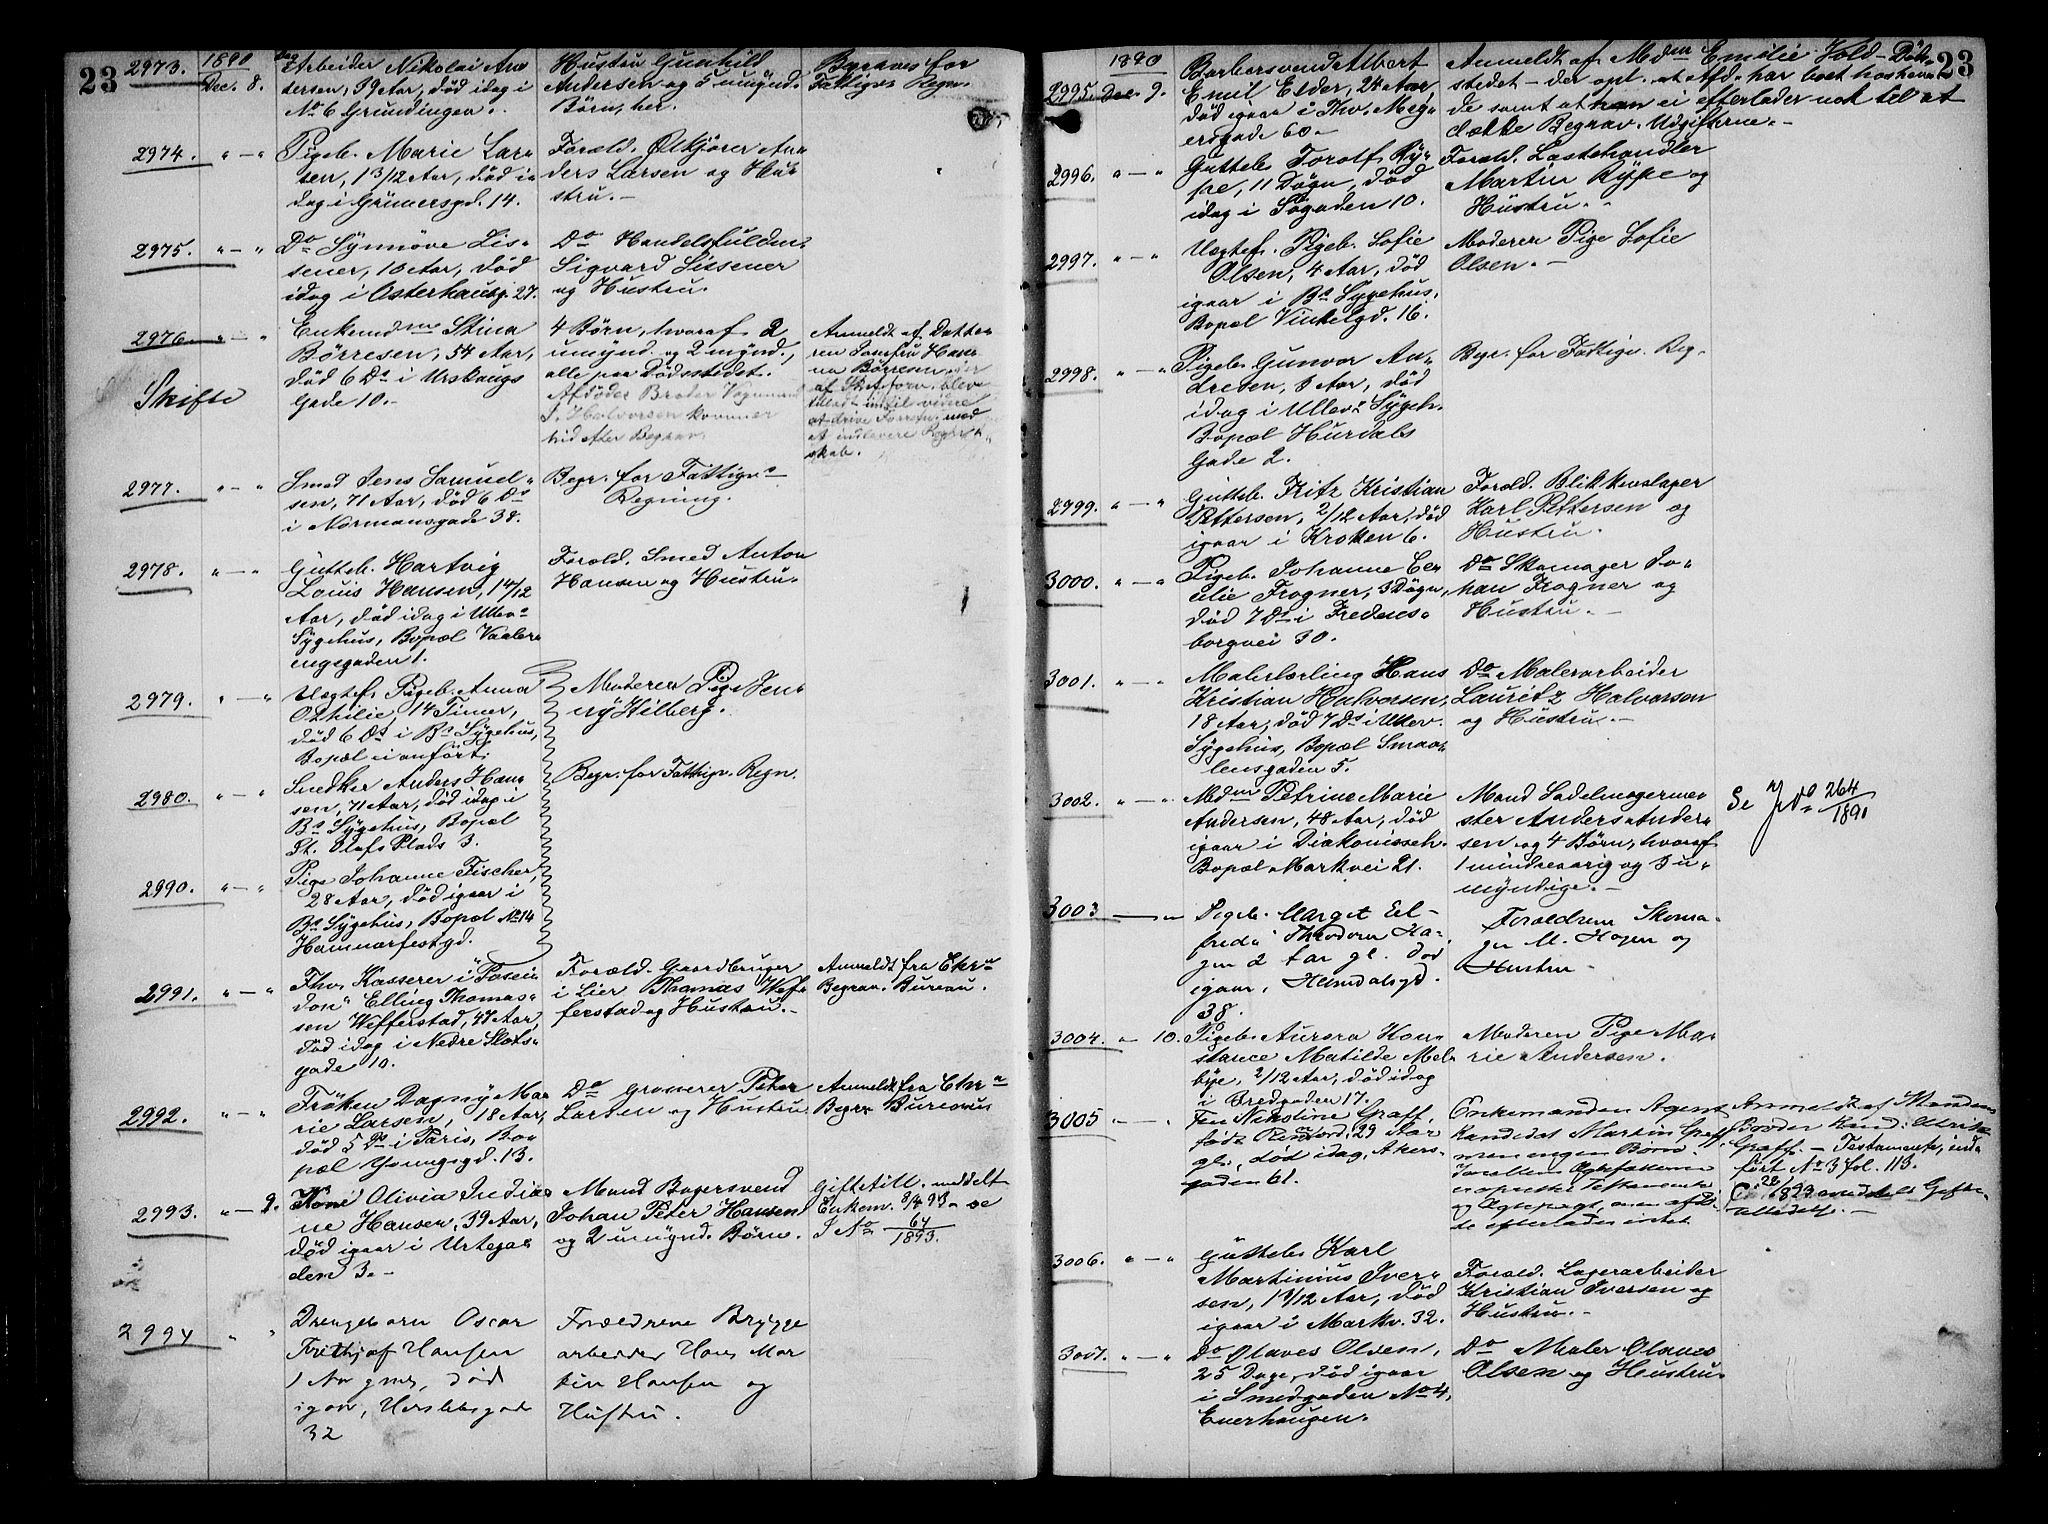 23
2973.
1890
Dec. 8.
Arbeider Nikolai An=
dersen, 39 Aar, død idag i
No 6 Grundingen.
Hustru Gunhild
Andersen og 5 umynd.
Børn, her.
Begraves for
Fattigv. Regn.
2974. " — "
Pigeb. Marie Lar=
sen, 1 3/12 Aar, død i=
dag i Grünersgd. 14.
Foræld. Ølkjører An=
ders Larsen og Hu=
stru. —
2975. " — "
Do Synnöve Lis=
sener, 10 Aar, død
idag i Osterhausg. 27.
Do Handelsfuldm.
Sigvard Lissener
og Hustru.
2976. " — "
Skifte
Enkemdme Stina
Börresen, 54 Aar,
død 6 Ds i Urskougs
Gade 10. —
4 Børn, hvoraf 2
umynd. og 2 mynd.,
alle paa Dødsstedet.
Afdødes Broder Vognmand
Halvorsen kommer
hid efter Begrav.
Anmeldt af Datte=
ren Jomfru Han=
na Börresen, der
af Skiftforv. blev
tilladt indtil videre
at drive Forretn. med
at indlevere Regn=
skab.
2977. " — "
Smed Jens Samuel=
sen, 71 Aar, død 6 Ds
i Normansgade 38.
Begr. for Fattigvs
Regning.
2978. " — "
Gutteb. Hartvig
Louis Hansen, 1 4/12
Aar, død idag i Ullev.
Sygehus, Bopæl Vaaler=
engsgaden 1.
Foræld. Smed Anton
Hansen og Hustru.
2979. " — "
Uægtef. Pigeb. Anna
Othilie, 14 Timer,
død 6 Ds i Bs Sygehus,
Bopæl ei anført.
Moderen Pige Jen=
ny Hilberg.
2980. " — "
Snedker Anders Han=
sen, 71 Aar, død idag i
Bs Sygehus, Bopæl
St. Olafs Plads 3.
Begr. for Fattigv. Regn.
2990. " — "
Pige Johanne Fischer,
28 Aar, død igaar i
Bs Sygehus, Bopæl No 14
Hammerfestgd.
2991. " — "
Fhv. Kasserer i "Posei=
don" Elling Thomas=
sen Wefferstad, 47 Aar,
død idag i Nedre Slots=
gade 10.
Foræld. Gaardbruger
i Lier Thomas Wef=
ferstad og Hustru. —
Anmeldt fra Chr.
Begrav. Bureau.
2992. " — "
Frøken Dagny Ma=
rie Larsen, 18 Aar,
død 5 Ds i Paris, Bo=
pæl Youngsgd. 13.
Do Grosserer Peter
Larsen og Hustru
Anmeldt fra Chr.
Begr. Bureau
2993. " — 9.
Kone Olivia India=
ne Hansen, 39 Aar,
død igaar i Urtega=
den 3. —
Mand Bagersvend
Johan Peter Hansen
og 2 umynd. Børn.
Giftetill. meddelt
Enkem. 8/4 93. se
J No 64/1893.
2994 " "
Drengebarn Oscar
Frithjof Hansen
1 Aar gml, død
igaar, Herslebsgade
32
Forældrene Brygge
arbeider Hans Mar
tin Hansen og
Hustru.
23
2995.
1890
Dec. 9.
Barbersvend Albert
Emil Elder, 24 Aar,
død igaar i Thv. Mey=
ersgade 60. —
Anmeldt af Mdm Emilie Vold — Døds=
stedet — der opl. at Afd. har boet hos hen=
de samt at han ei efterlader nok til at
dække Begrav. Udgifterne. —
2996. " — "
Gutteb. Torolf Ry=
pe, 11 Døgn, død
idag i Søgaden 10.
Foræld. Lastehandler
Martin Rype og
Hustru. —
2997. " — "
Uægtef. Pigeb. Sofie
Olsen, 4 Aar, død
igaar i Bs Sygehus,
Bopæl Vinkelgd. 16.
Moderen Pige Sofie
Olsen. —
2998. " — "
Pigeb. Gunvor An=
dresen, 3 Aar, død
idag i Ullev. Sygeh.
Bopæl Hurdals
Gade 2.
Begr. for Fattigv. Reg.
2999. " — "
Gutteb. Fritz Kristian
Pettersen, 2/12 Aar, død
igaar i Kroken 6.
Foræld. Blikkenslager
Karl Pettersen og
Hustru.
3000. " — "
Pigeb. Johanne Ce=
cilie Frogner, 3 Døgn,
død 7 Ds i Fredens=
borgvei 30.
Do Skomager Jo=
han Frogner og
Hustru. —
3001. " — "
Malerlærling Hans
Kristian Halvorsen,
18 Aar, død 7 Ds i Ullev.
Sygehus, Bopæl Smaa=
lensgaden 5.
Do Malerarbeider
Lauritz Halvorsen
og Hustru. —
3002. " — "
Mdme Petrine Marie
Andersen, 48 Aar, død
igaar i Diakonisseh.
Bopæl Markvei 21.
Mand Sadelmagerme=
ster Anders Ander=
sen og 4 Børn, hvoraf
1 mindreaarig og 3 u=
myndige. —
Se J No 264/1891
3003 — "
Pigeb. Margit El=
frida Theodora Ha=
gen 2 Aar gl. død
igaar, Heimdalsgd.
38.
Forældrene Skoma=
ger M. Hagen og
Hustru —
3004. " 10.
Pigeb. Aurora Kon=
stance Matilde Mel=
bye, 2/12 Aar, død idag
i Bredgaden 17.
Moderen Pige Ma=
rie Andersen.
3005 " — "
Fru Nikoline Graff,
født Rustad, 29 Aar
gl., død idag, Akers=
gaden 61.
Enkemanden Agent,
kandidat Martin Graff,
men ingen Børn.
og Ægtepagt,
te efterlades intet
Anmeldt af Mandens
Broder Kand. Ulrik
Graff. — Testamente, ind=
ført No 3 fol. 113.
1893 meddelt Gifte=
tilladelse. —
3006. " — "
Gutteb. Karl
Martinius Iver=
sen, 1 1/12 Aar, død
igaar i Markv. 32.
Foræld. Lagerarbeider
Kristian Iversen og
Hustru. —
3007. " — "
Do Olaves Olsen,
25 Dage, død igaar
i Smedgaden No 4,
Enerhaugen.
Do Maler Olaves
Olsen og Hustru.